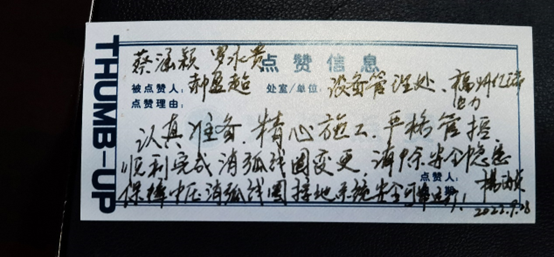 THUMB-UP
点赞信息
蔡涵颖 罗永贵
被点赞人：郝盈超 处室/单位：设备管理处、福州亿
电力
点赞理由：
认真准备、精心施工、严格管控
顺利完成消弧线圈变更、消除安全隐患
点赞人：杨
保障中压消弧线圈接地系统安全可靠运行！
2022.9.08